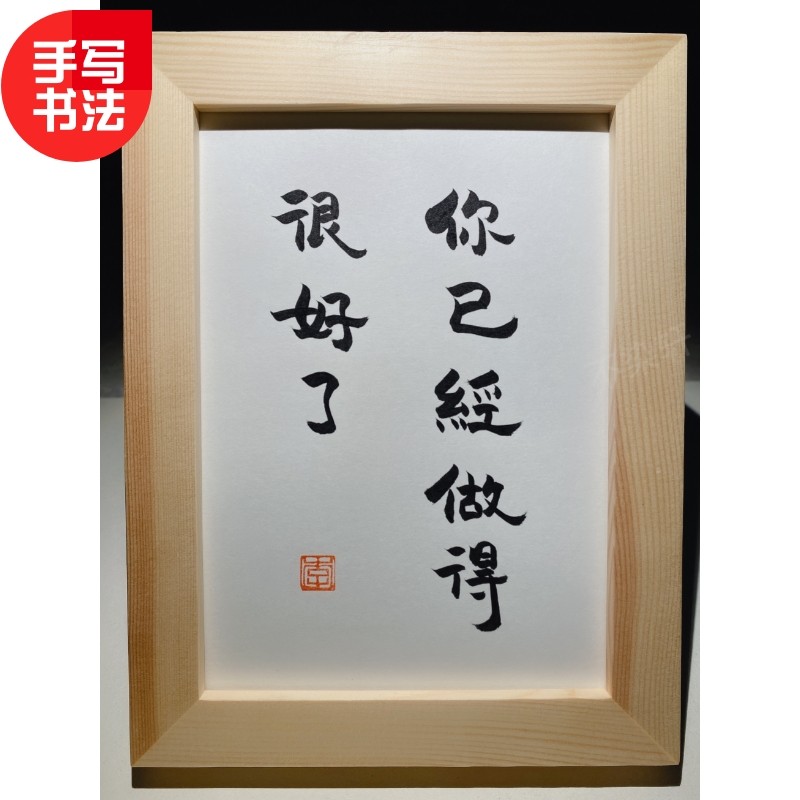 手写
书法
你已經做得
很好了